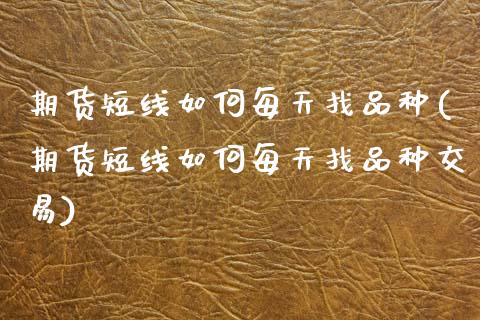 期货短线如何每天找品种(
期货短线如何每天找品种交
易)